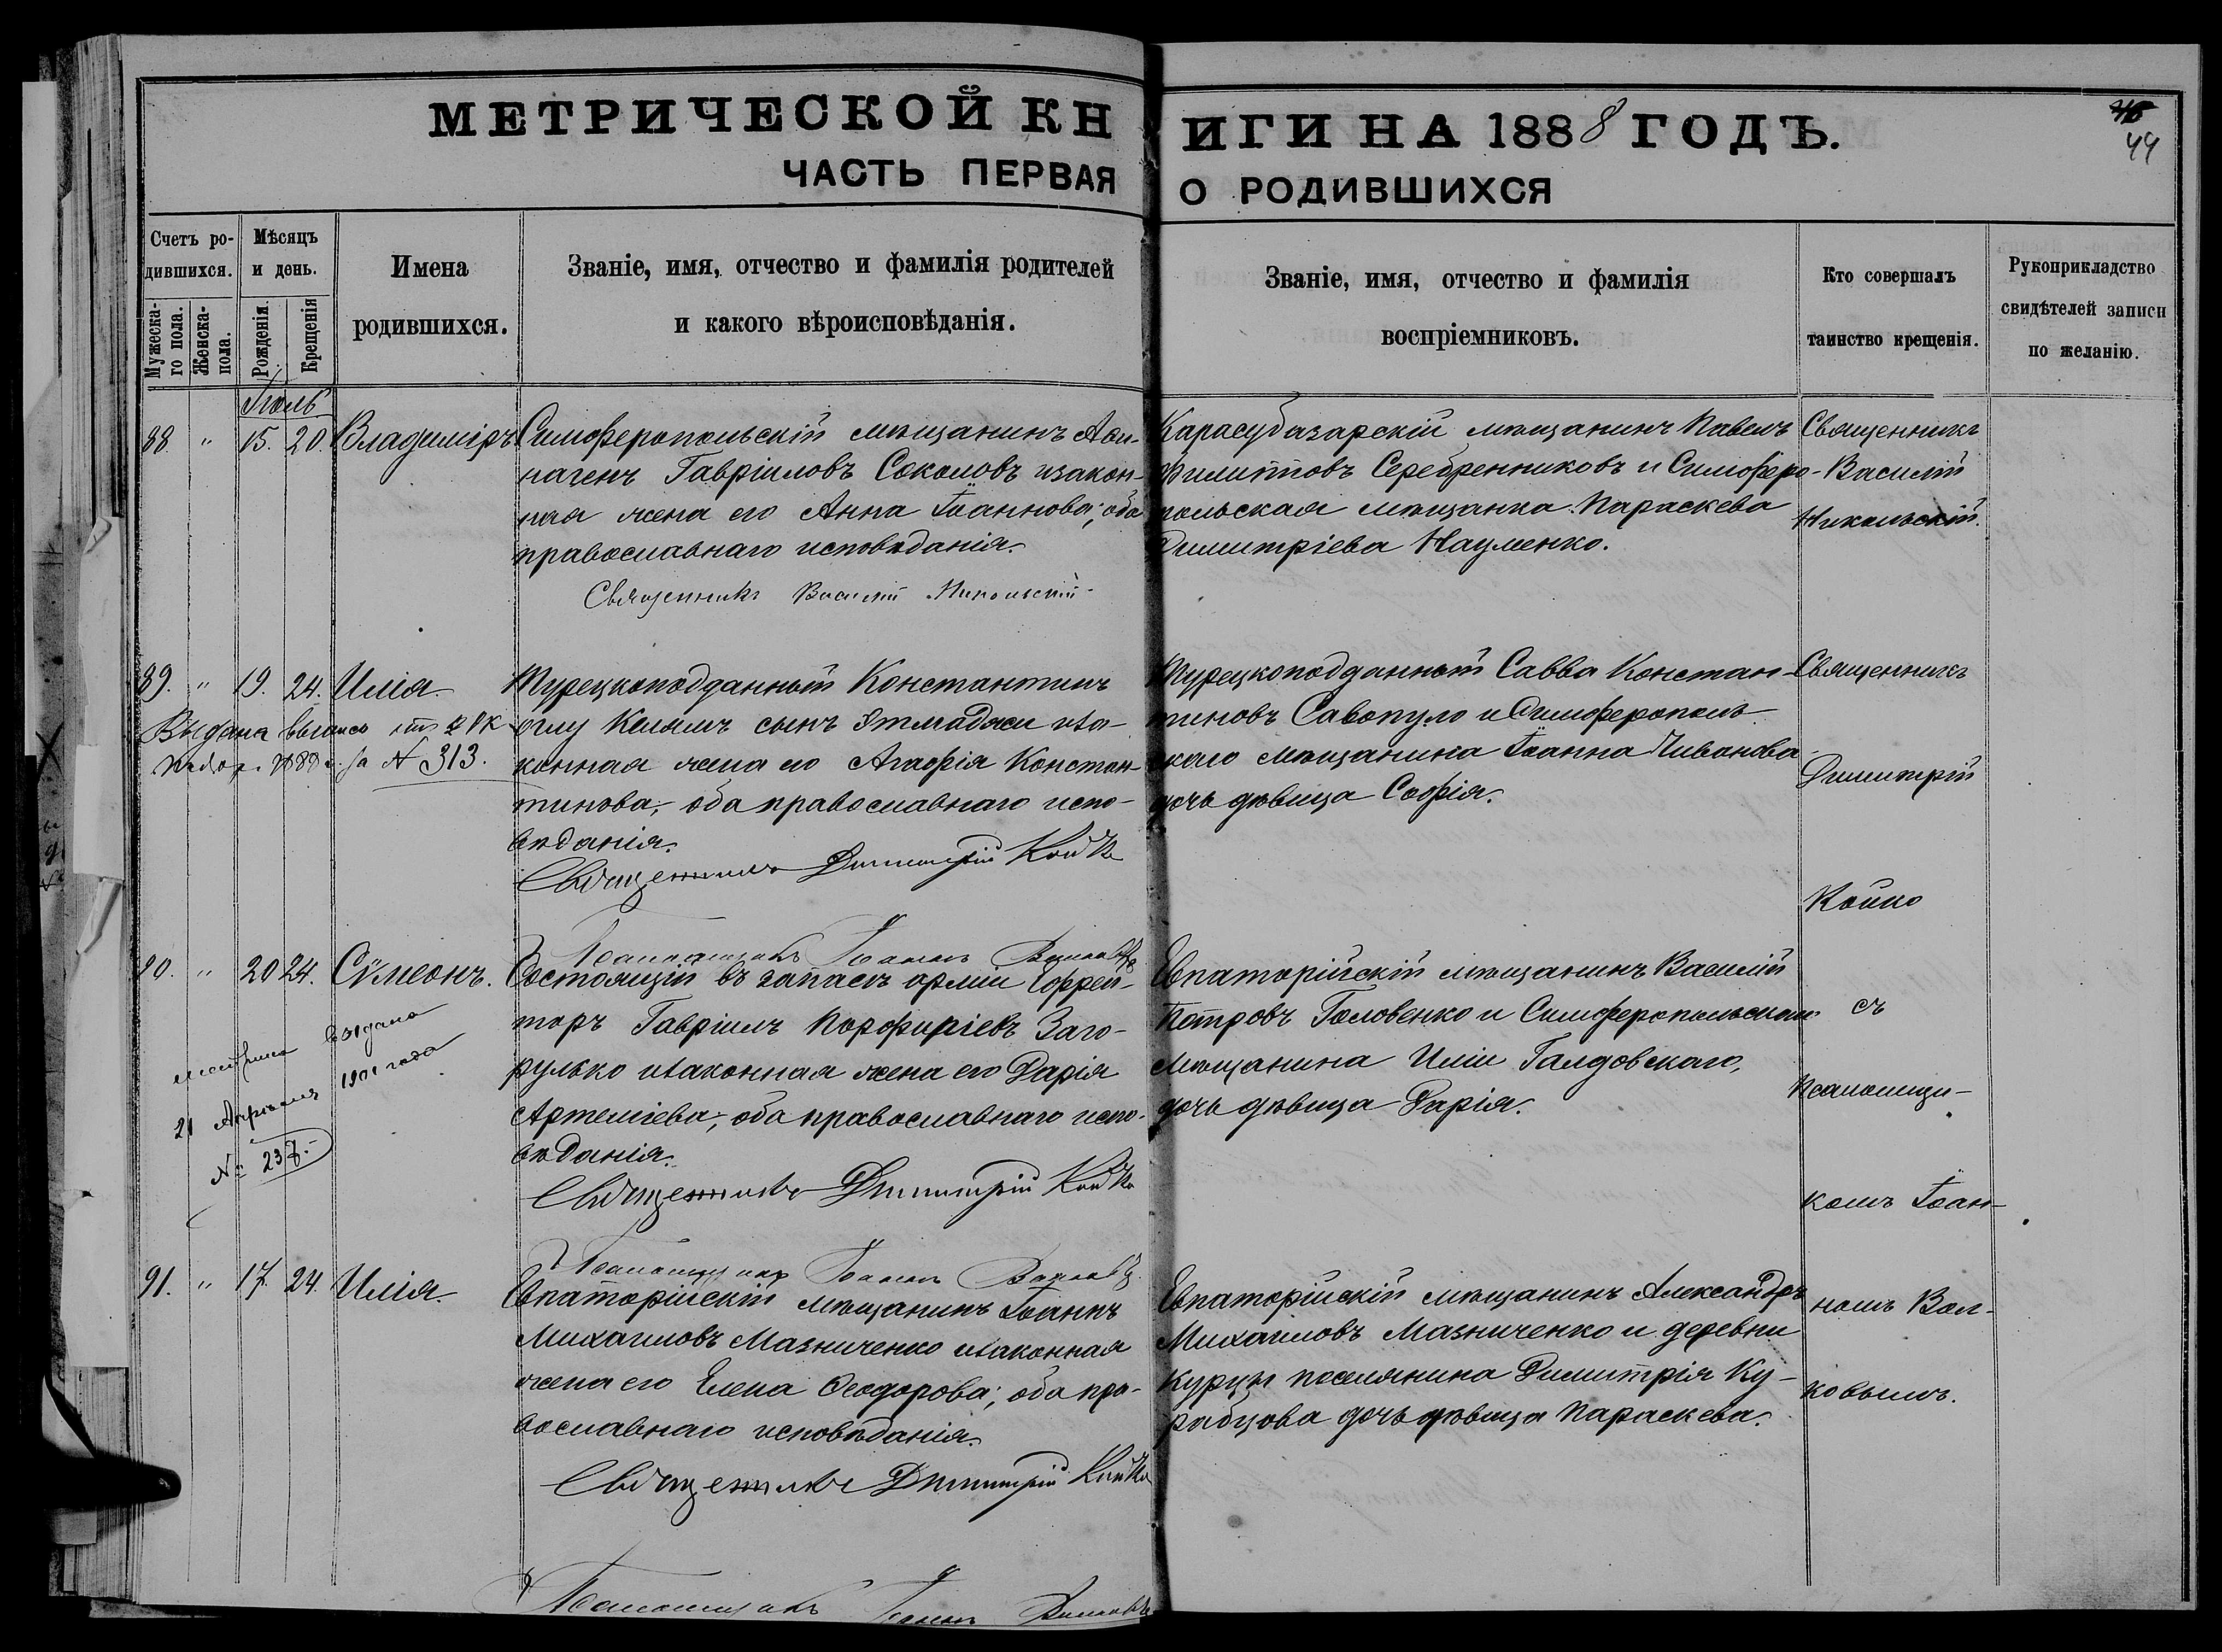 МЕТРИЧЕСКОЙ КНИГИ НА 1888 ГОДЪ.
44
ЧАСТЬ ПЕРВАЯ О РОДИВШИХСЯ
Счетъ родившихся.
Мужеска-
го пола.
Женска-
пола.
Мѣсяцъ
и день.
Рожденія.
Крещенія
Имена
родившихся.
Званіе, имя, отчество и фамилія родителей
и какого вѣроисповѣданія.
Званіе, имя, отчество и фамилія
воспріемниковъ.
Кто совершалъ
таинство крещенія.
Рукоприкладство
свидѣтелей записи
по желанію.
Іюль
88. " 15. 20. Владиміръ.
Симферопольскій мѣщанинъ Аѳи-
нагенъ Гавріиловъ Соколовъ изакон-
ная жена его Анна Іоаннова; оба
православнаго исповѣданія.
Священникъ Василій Никольскій
Карасубазарскій мѣщанинъ Павелъ
Филипповъ Серебренниковъ и Симферо-
польская мѣщанка Параскева
Димитріева Науменко.
Священникъ
Василій
Никольскій.
89. " 19. 24. Илія
Выдана выпись
за № 313.
Турецкоподданный Константинъ
оглу Келямъ сынъ Этмаджи иза-
конная жена его Агафія Констан-
тинова; оба православнаго испо-
вѣданія.
Священникъ Димитрій Койко
Псаломщикъ Іоаннъ Волковъ
Турецкоподданный Савва Констан-
тиновъ Савопуло и Симферополь-
скаго мѣщанина Іоанна Чиванова
дочь дѣвица Софія.
Священникъ
Димитрій
Койко
съ
Псаломщи-
комъ Іоан-
номъ Вол-
ковымъ.
90. " 20 24. Сѵмеонъ.
метрика выдана
21 Апрѣля 1901 года
№ 237.
Состоящій въ запасѣ арміи Ефрей-
торъ Гавріилъ Порфиріевъ Заго-
рулько изаконная жена его Дарія
Артеміева; оба православнаго испо-
вѣданія.
Священникъ Димитрій Койко
Псаломщикъ Іоаннъ Волковъ
Евпаторійскій мѣщанинъ Василій
Петровъ Головенко и Симферопольскаго
мѣщанина Иліи Галдовскаго,
дочь дѣвица Дарія.
91. " 17. 24. Илія.
Евпаторійскій мѣщанинъ Іоаннъ
Михаиловъ Мазниченко изаконная
жена его Елена Ѳеодорова; оба пра-
вославнаго исповѣданія.
Священникъ Димитрій Койко
Псаломщикъ Іоаннъ Волковъ
Евпаторійскій мѣщанинъ Александръ
Михаиловъ Мазниченко и деревни
Курцы поселянина Димитрія Ку-
рабцова дочь дѣвица Параскева.